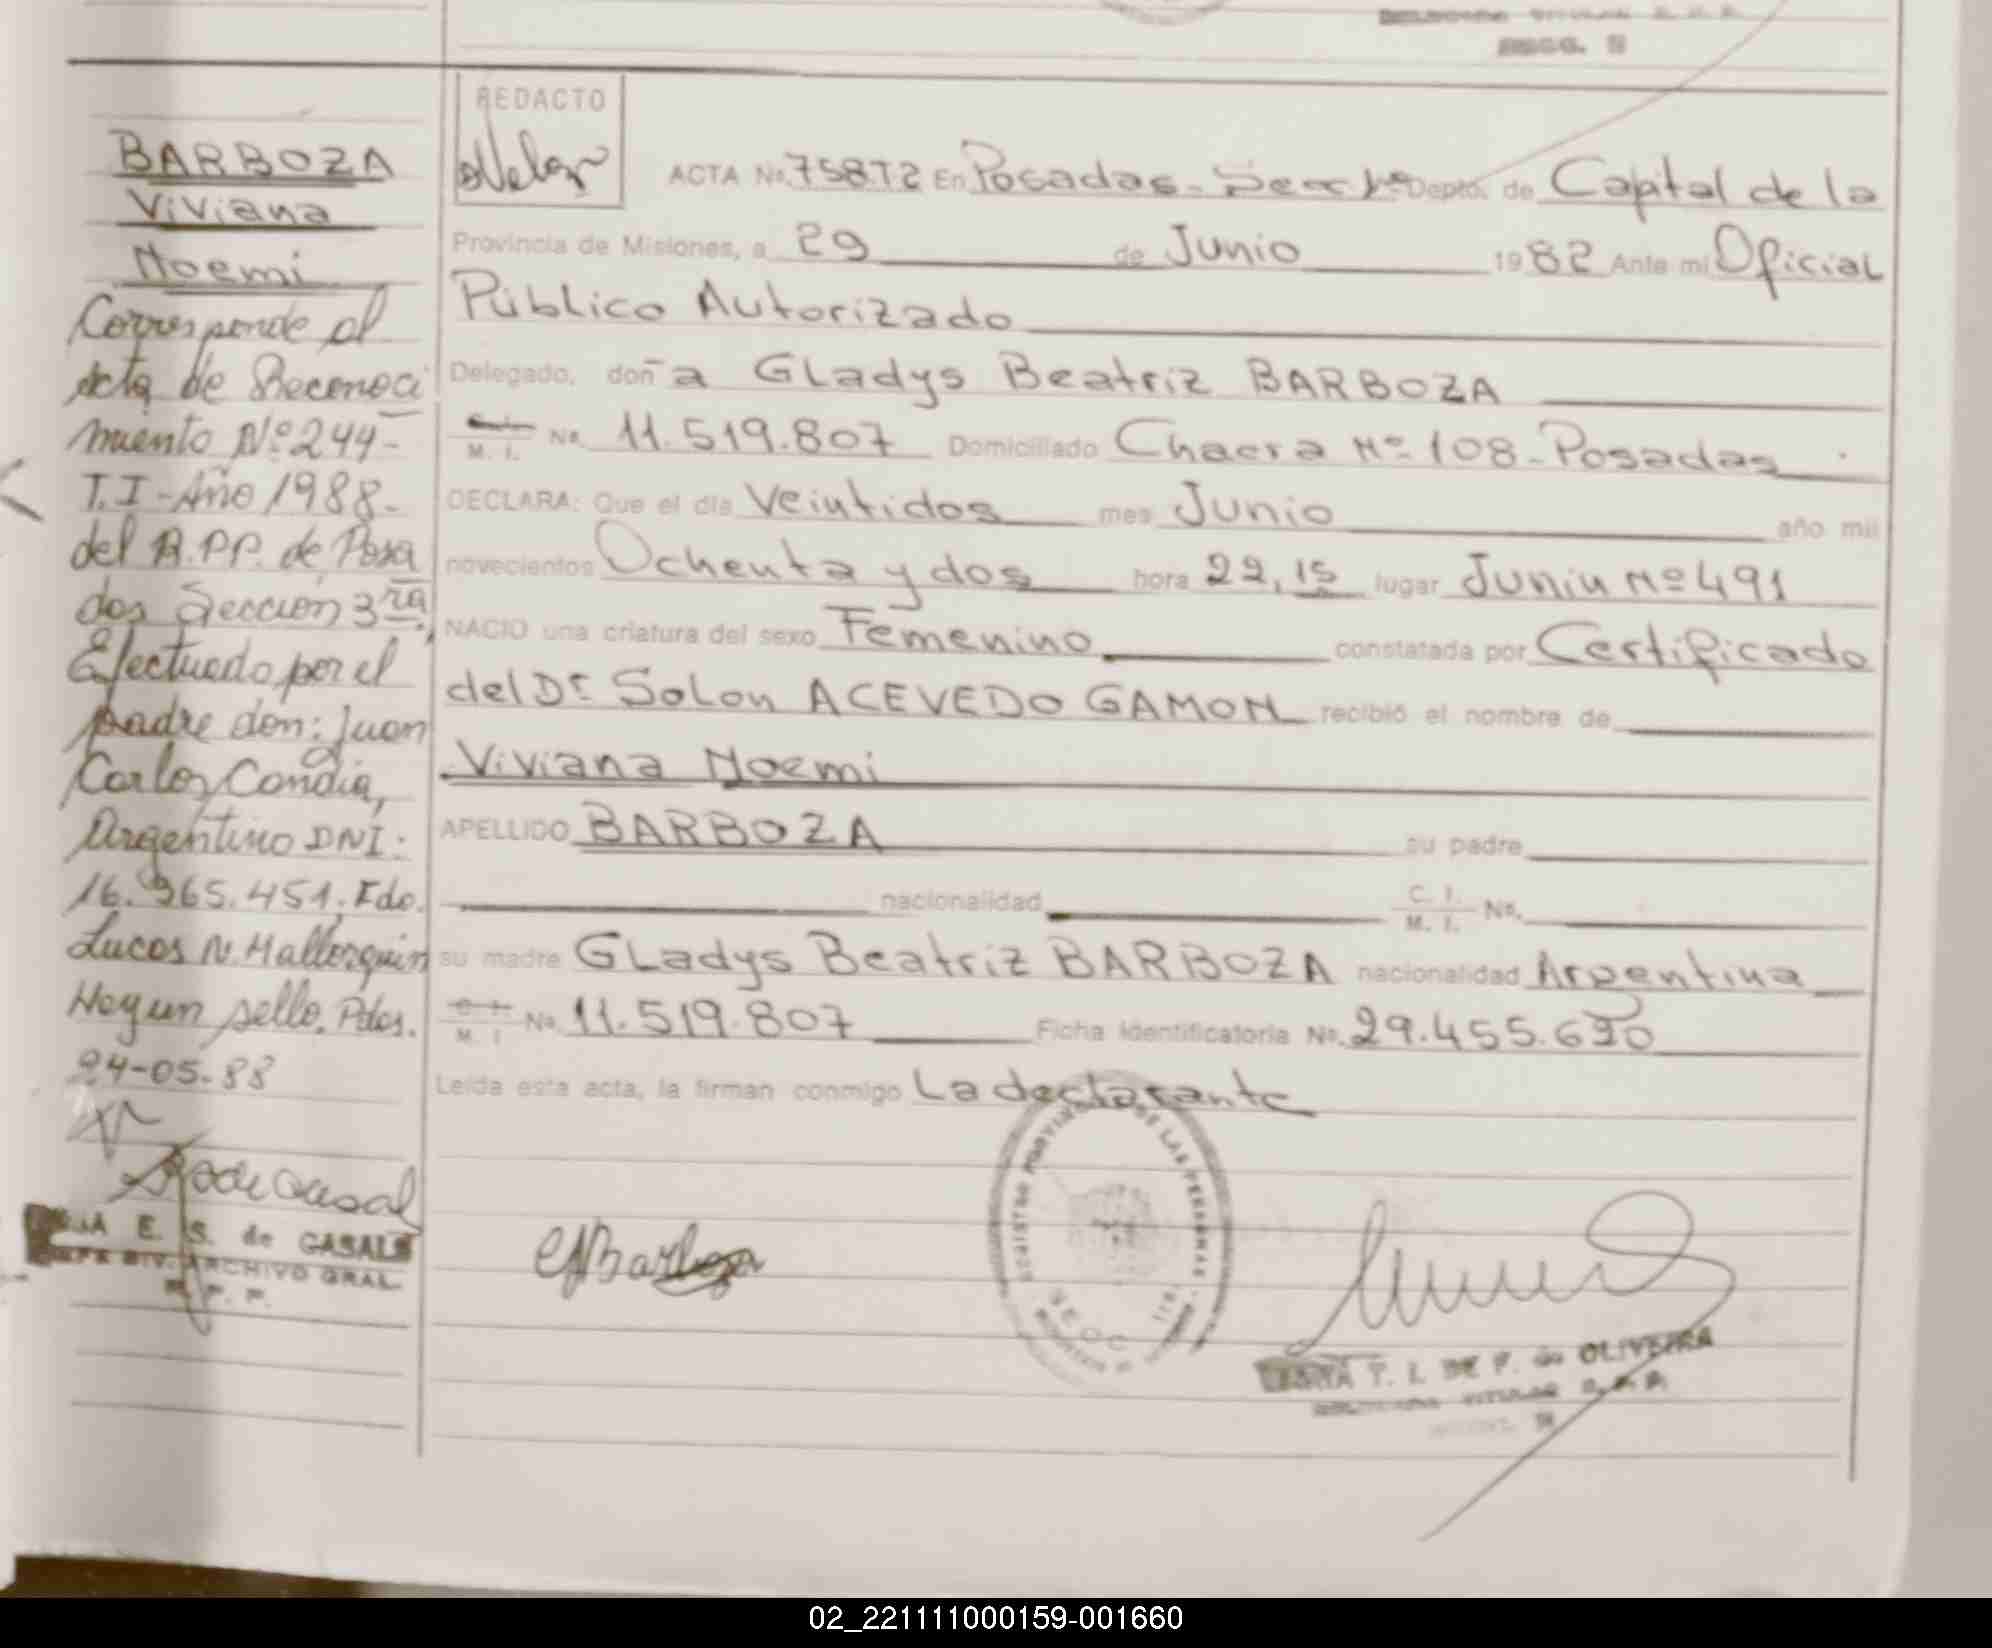 BARBOZA
Viviana
Noemi
Corresponde al
acta de Reconoci
miento Nº 244-
T.I-Año 1988-
del R.P.P. de Posa
das Sección 3ra.
Efectuado por el
padre don: Juan
Carlos Condia,
Argentino DNI:
16.965.451. Fdo.
Lucas N. Mallorquin
Hay un sello. Pdas.
24-05-88
E. S. de CASALS
DIV. ARCHIVO GRAL.
R. P. P.
REDACTO
ACTA No. 758.T2 En Posadas-Secc 1º Depto. de Capital de la
Provincia de Misiones, a 29 de Junio 1982 Ante mi Oficial
Público Autorizado
Delegado, doña Gladys Beatriz BARBOZA
M. I. No. 11.519.807 Domiciliado Chacra Nº 108-Posadas
DECLARA: Que el día Veintidos mes Junio año mil
novecientos Ochenta y dos hora 22,15 lugar Junin Nº 491
NACIO una criatura del sexo Femenino constatada por Certificado
del Dr. Solon ACEVEDO GAMON recibió el nombre de
Viviana Noemi
APELLIDO BARBOZA su padre
nacionalidad C. I. M. I. No.
su madre Gladys Beatriz BARBOZA nacionalidad Argentina
C. I. M. I. No. 11.519.807 Ficha Identificatoria No. 29.455.690
Leída esta acta, la firman conmigo La declarante
GBBarboza
REGISTRO PROVINCIAL DE LAS PERSONAS
T. I. DE F. de OLIVEIRA
TITULAR R. P. P.
02_221111000159-001660